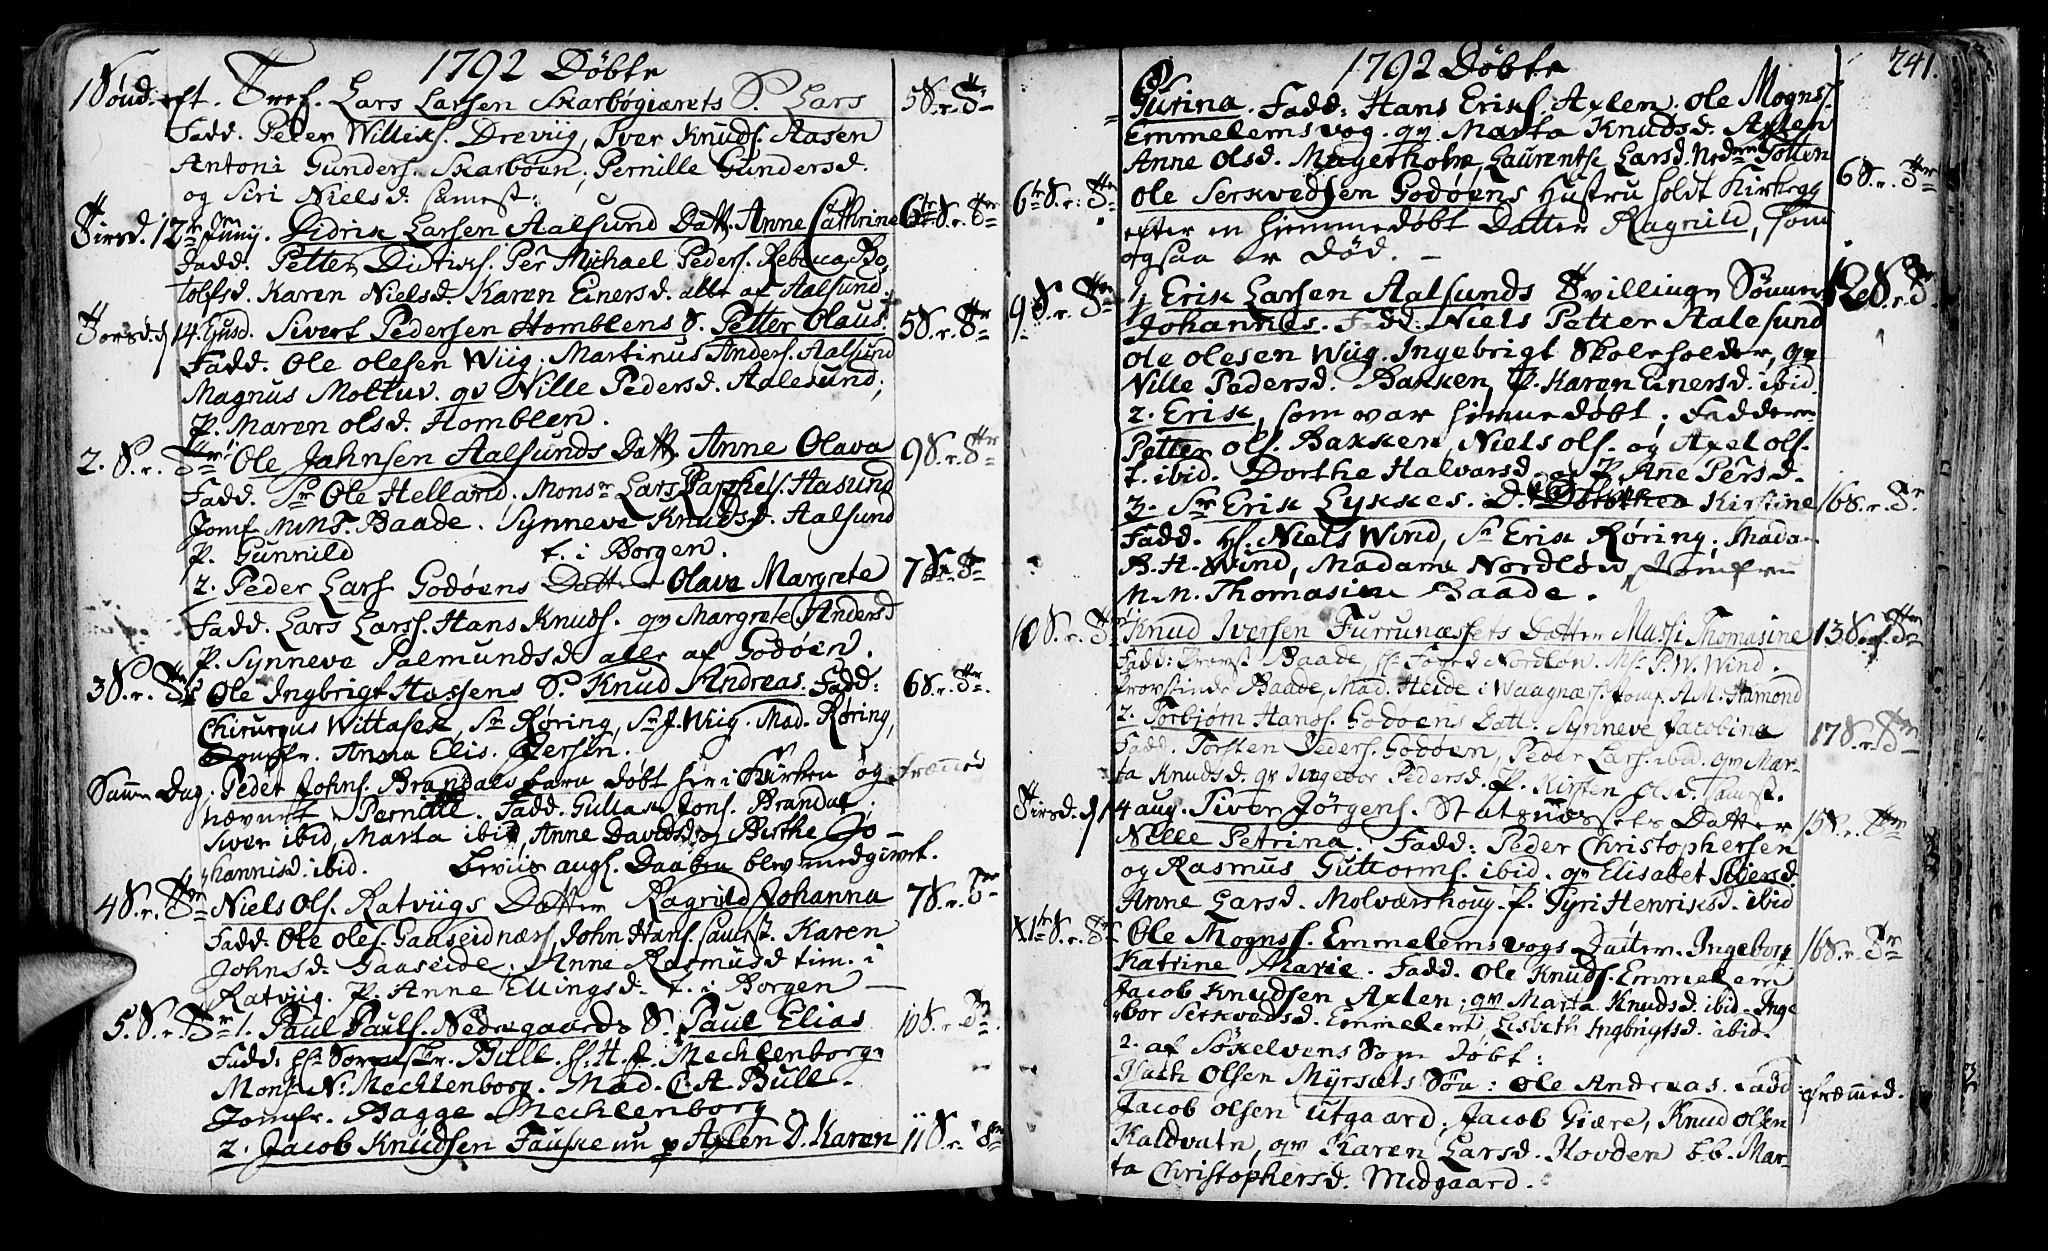 1792 Döbte
1 Sönd. eft. Tref. Lars Larsen Skarbøgiærets S. Lars 5 S. e. Tr.
Fadd. Peder Williks. Drevüg, Iver Knuds. Aasen
Antoni Gunders. Skarbøen, Pernille Gundersd.
og Siri Nielsd. samest:
Tirsd. 12te Junij. Didrik Larsen Aalsund Datt. Anne Cathrine 6te S. e. Tr.
Fadd. Petter Didriks. Per Michael Peders. Rebecca Ro-
tolfsd. Karen Nielsd. Karen Einersd. alle af Aalsund.
Torsd. d. 14. Ejusd. Sivert Pedersen Homblens S. Petter Olaus. 5 S. e. Tr.
Fadd. Ole Olesen Wiig. Martinus Anders. Aalsund
Magnus Moltuv. qv Nille Pedersd. Aalesund,
P. Maren olsd. Homblen.
2. S. e. Tr. Ole Jahnsen Aalsunds Datt. Anne Olava 9 S. e. Tr.
Fadd. Sr Ole Helland. Monsr Lars Hasund
Jomf. M.M.T. Baade. Synneve Knudsd. Aalsund
P. Gunnild t. i Borgen.
2. Peder Lars. Godøens Datter Olava Margrete 7 S. e. Tr.
Fadd. Lars Larss. Hans Knuds. qv Margrete Andersd
P. Synneve Salmundsd alle af Godøen.
3 S. e. Tr. Ole Ingbrigt Hassens S. Knud Andreas. Fadd: 6 S. e. Tr.
Chirurgus Wittasek, Sr Røring, Sr J. Wiig. Mad. Røring,
Jomfr. Anna Elis.
Samme Dag. Peder Johns. Brandals barn døbt her i Kirken og fræmed
nævnt Pernille. Fadd. Gullak Jons. Brandal.
Siver ibid, Marta ibid, Anne Davidsd og Birthe Jo-
hannisd. ibid. Beviis ang. Daaben blev medgivet.
4 S. e. Tr. Niels Ols. Ratvügs Datter Ragnild Johanna 7 S. e. Tr.
Fadd. Ole Oles. Gaaseidnæs, John Hans. samst. Karen
Johnsd. Gaaseide. Anne Rasmusd tien. i
Ratvüg. P. Anne Ellingsd. t. i Borgen
5. S. e. Tr. 1. Paul Pauls. Nedregaards S. Paul Elias 10 S. e. Tr.
Fadd: Hr Sorenskr. Bull. Hr: H. J. Mechlenborg
Mons. N: Mechlenborg. Mad. C. A. Bull.
Jomfr. Bagge Mechlenborg
2. Jacob Knudsen Fauske nu p Axlen D. Karen 11 S. e. Tr.
1792 Döbte 241.
Gurina. Fadd: Hans Eriks. Axlen. Ole Mogns.
Emmelemsvog. qv Marta Knudsd. Axlen
Anne Olsd. Magerholm, Laurentse Larsd. Nedre Totten
6te S. e: Tr. Ole Serkvedsen Godøens Hustru holdt Kirkegg 6 S. e. Tr
efter en hjemmedøbt Datter Ragnild, som
ogsaa er død.
9 S. e. Tr. 1/ Erik Larsen Aalsunds Tvillinge Sønner 12 S. e. Tr.
Johannes. Fadd: Niels Petter Aalesund
Ole Olesen Wiig. Ingebrigt Skoleholder, qv
Nille Pedersd. Bakken, P. Karen Einersd. ibid
2. Erik, som var hiemedøbt; Faddere
Petter Ols. Bakken, Niels ols. og Axel ols.
t. ibid. Dorthe Halvarsd. og P. Anne Persd.
3. Sr Erik Lykkes. D. Dorothea Kirstine 16 S. e. Tr.
Fadd. Hr. Niels Wind, Sr Erik Røring, Mada-
B. H. Wind, Madame Nordløu, Jomfru
M. M. Thomasine Baade.
10 S. e. Tr. Knud Iversen Furrunæssets Datter Massi Thomasine 13 S. e. Tr.
Fadd: Provst Baade, Hr Foged Nordløu. Mr. P. W. Wind.
Provstinde Baade, Mad. Heide i Waagnæs. Jomf. A. M. Hamond
2. Torbjørn Hanss. Godøens Datt. Synneve Jacobina 17 S. e. Tr.
Fadd. Torsten Peders. Godøen, Peder Lars. ibid. qv Mar-
ta Knudsd. qv Ingebor Pedersd. P. Kirsten Olsd. samst.
Tirsd. d. 14 aug. Siver Jørgens. Statsnæssets Datter 15 S. e. Tr.
Nille Petrina. Fadd: Peder Christophersen
og Rasmus Guttorms. ibid. qv Elisabet Siversd.
Anne Larsd. Molværshoug. P. Gyri Henriksd. ibid
X1te S. e. Tr. Ole Mognss. Emmelemsvogs Datter. Ingeborg 16 S. e. Tr.
Katrine Marie. Fadd. Ole Knuds. Emmelem
Jacob Knudsen Axlen. qv Marta Knudsd. ibid. Inge
bor Serkvedsd. Emmelem Lisbeth Ingbrigtsd. ibid.
2. af Søkelvens Sogn døbt:
Isach Olsen Myrsæts Søn: Ole Andreas. Fadd: fræmed.
Jacob Olsen Utgaard. Jacob Giære, Knud Olsen
Kaldvatn, qv Karen Larsd. Hovden b.b. Mar-
ta Christophersd. Midgaard.